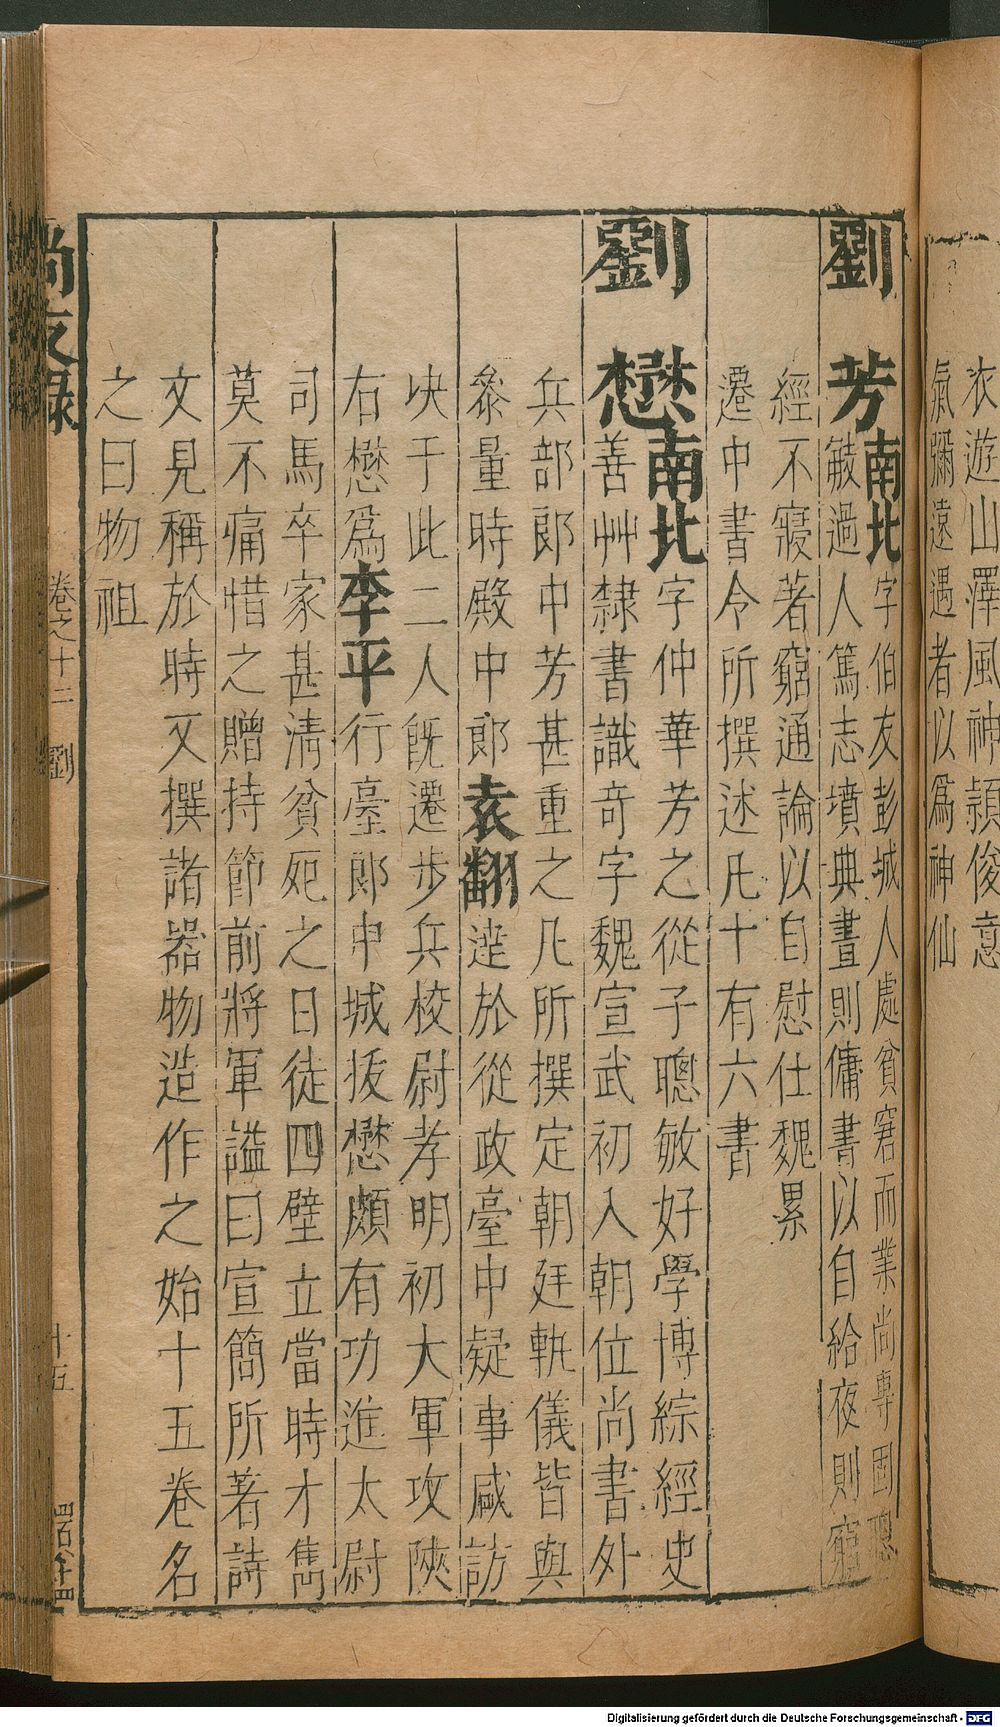 衣遊山澤風神頴俊意
氣彌遠遇者以爲神仙
劉芳南北字伯友彭城人處貧窘而業尚專固聰
敏過人篤志墳典晝則傭書以自給夜則窮
經不寢著窮通論以自慰仕魏累
遷中書令所撰述凡十有六書
劉懋南北字仲華芳之從子聰敏好學博綜經史
善艸隸書識奇字魏宣武初入朝位尚書外
兵部郎中芳甚重之凡所撰定朝廷軌儀皆與
叅量時殿中郎袁翻逹於從政臺中疑事咸訪
决于此二人旣遷步兵校尉孝明初大軍攻陜
右懋爲李平行臺郎中城拔懋頗有功進太尉
司馬卒家甚清貧死之日徒四壁立當時才雋
莫不痛惜之贈持節前將軍謚曰宣簡所著詩
文見稱於時又撰諸器物造作之始十五卷名
之曰物祖
尚友錄
卷之十二
劉
十五
Digitalisierung gefördert durch die Deutsche Forschungsgemeinschaft - DFG